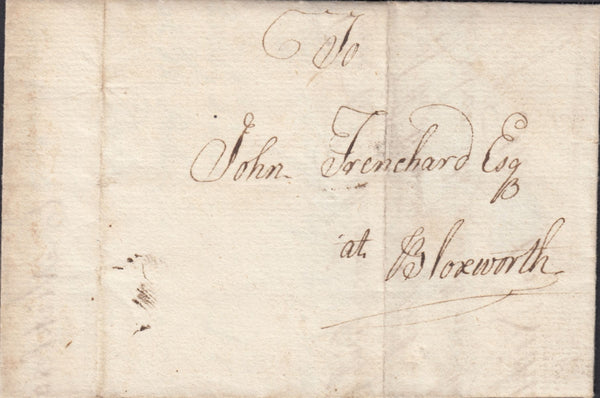 To
John Trenchard Esq
at Bloxworth